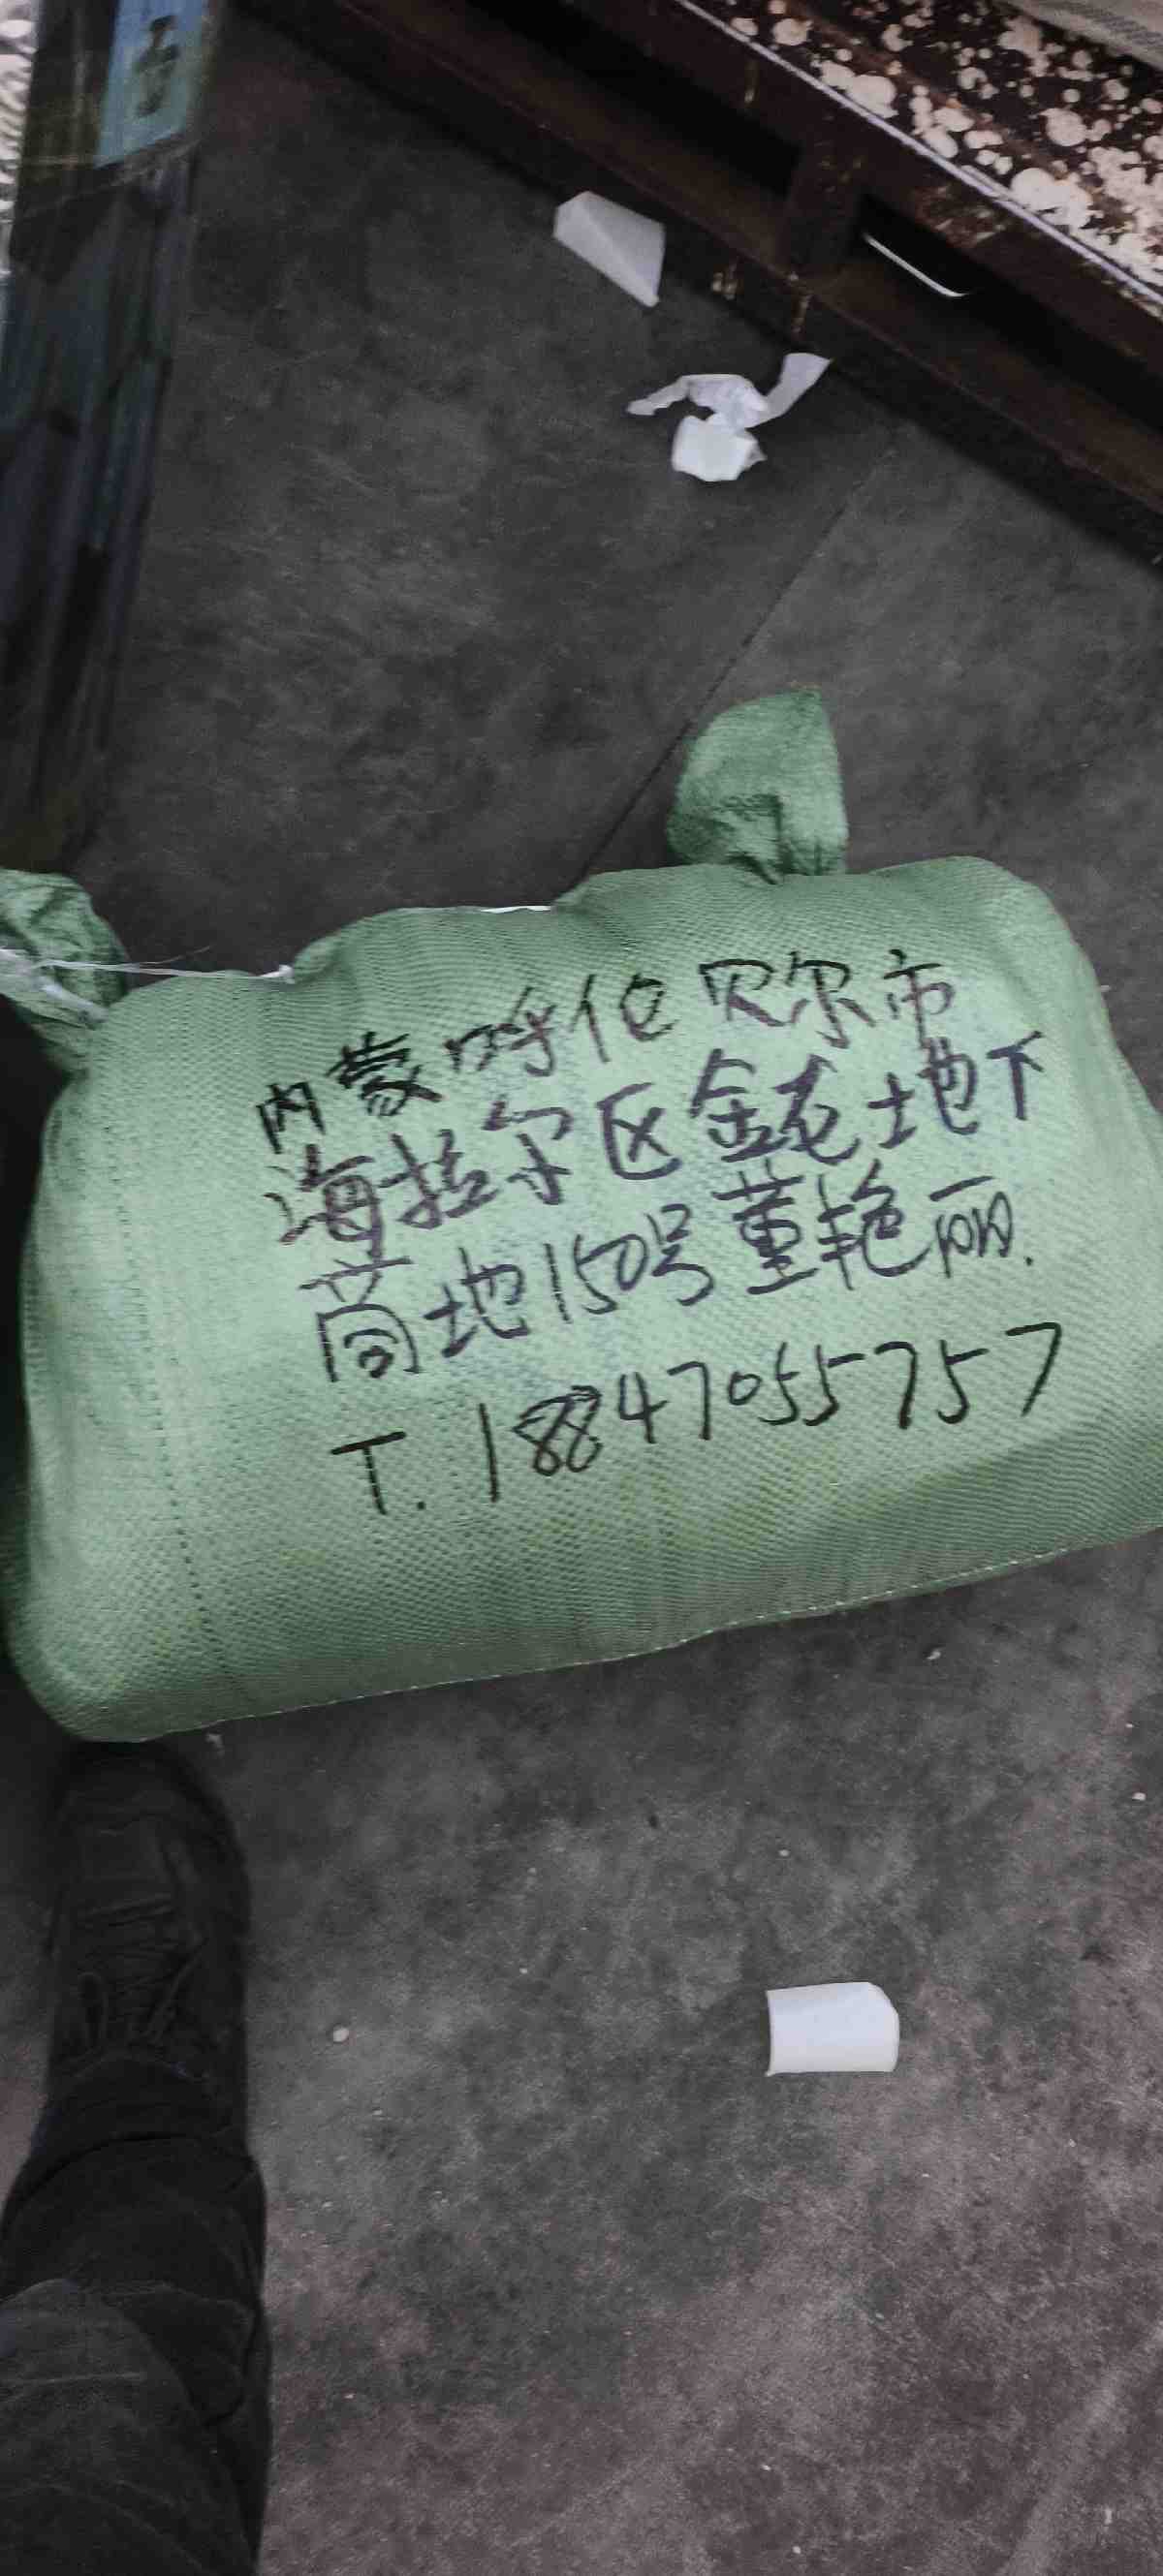 内蒙呼伦贝尔市
海拉尔区金龙地下
商地150号董艳丽.
T.18847055757